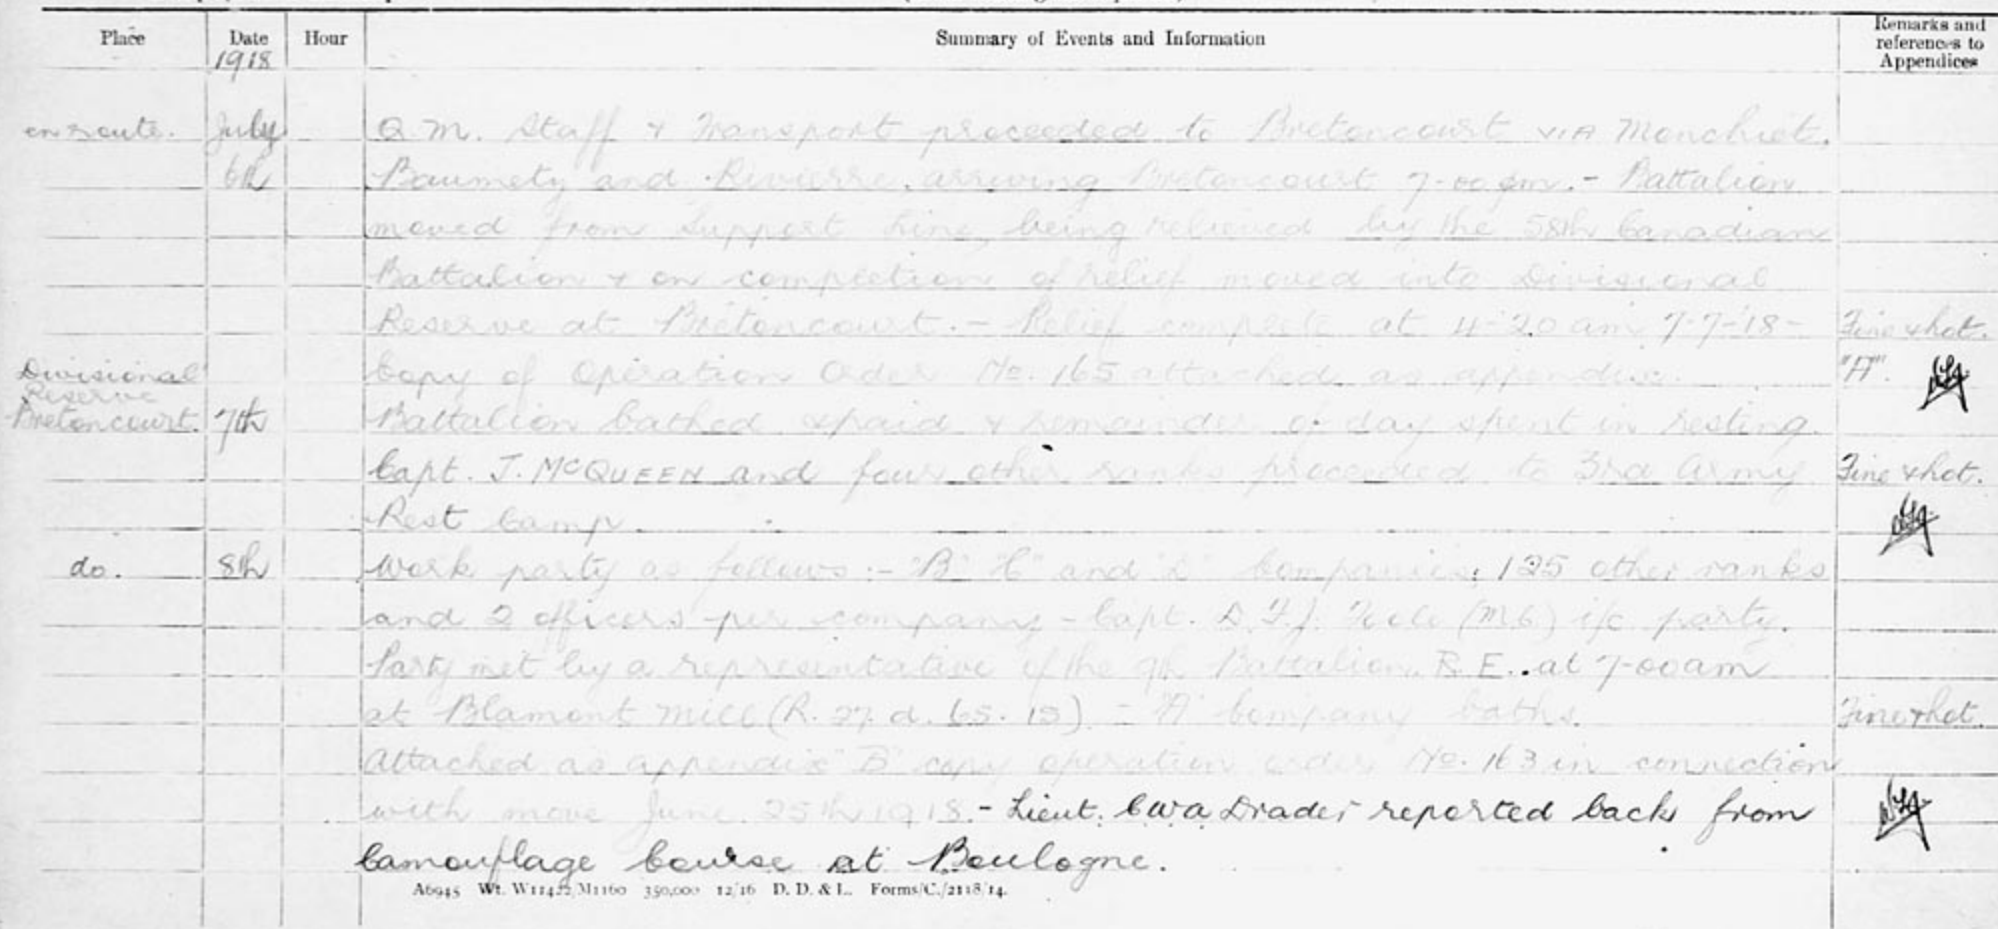 Place Date Hour Summary of Events and Information Remarks and references to Appendices
1918
en route. July Q.M. Staff & Transport proceeded to Bretoncourt VIA Monchiet.
6th Baumety and Rivierre, arriving Bretoncourt 7-00 pm. - Battalion
moved from Support Line, being relieved by the 58th Canadian
Battalion & on completion of relief moved into Divisional
Reserve at Bretoncourt. - Relief complete at 4-20 am 7-7-18 - Fine & hot.
Copy of Operation Order No. 165 attached as appendix "A".
Divisional
Reserve
Bretoncourt. 7th Battalion bathed & paid & remainder of day spent in resting.
Capt. J. McQUEEN and four other ranks proceeded to 3rd Army Fine & hot.
Rest Camp.
do. 8th Work party as follows :- "B" "C" and "D" Companies, 125 other ranks
and 2 officers per company - Capt. D.F.J. Toole (MC) i/c party.
Party met by a representative of the 9th Battalion R.E. at 7-00 am
at Blamont Mill (R. 27. d. 65. 15) - "A" Company baths. Fine & hot.
Attached as appendix "B" copy operation order No. 163 in connection
with move June 25th 1918. - Lieut. CWA Drader reported back from
Camouflage Course at Boulogne.
A6945 Wt. W11422/M1160 350,000 12/16 D. D. & L. Forms/C./2118/14.